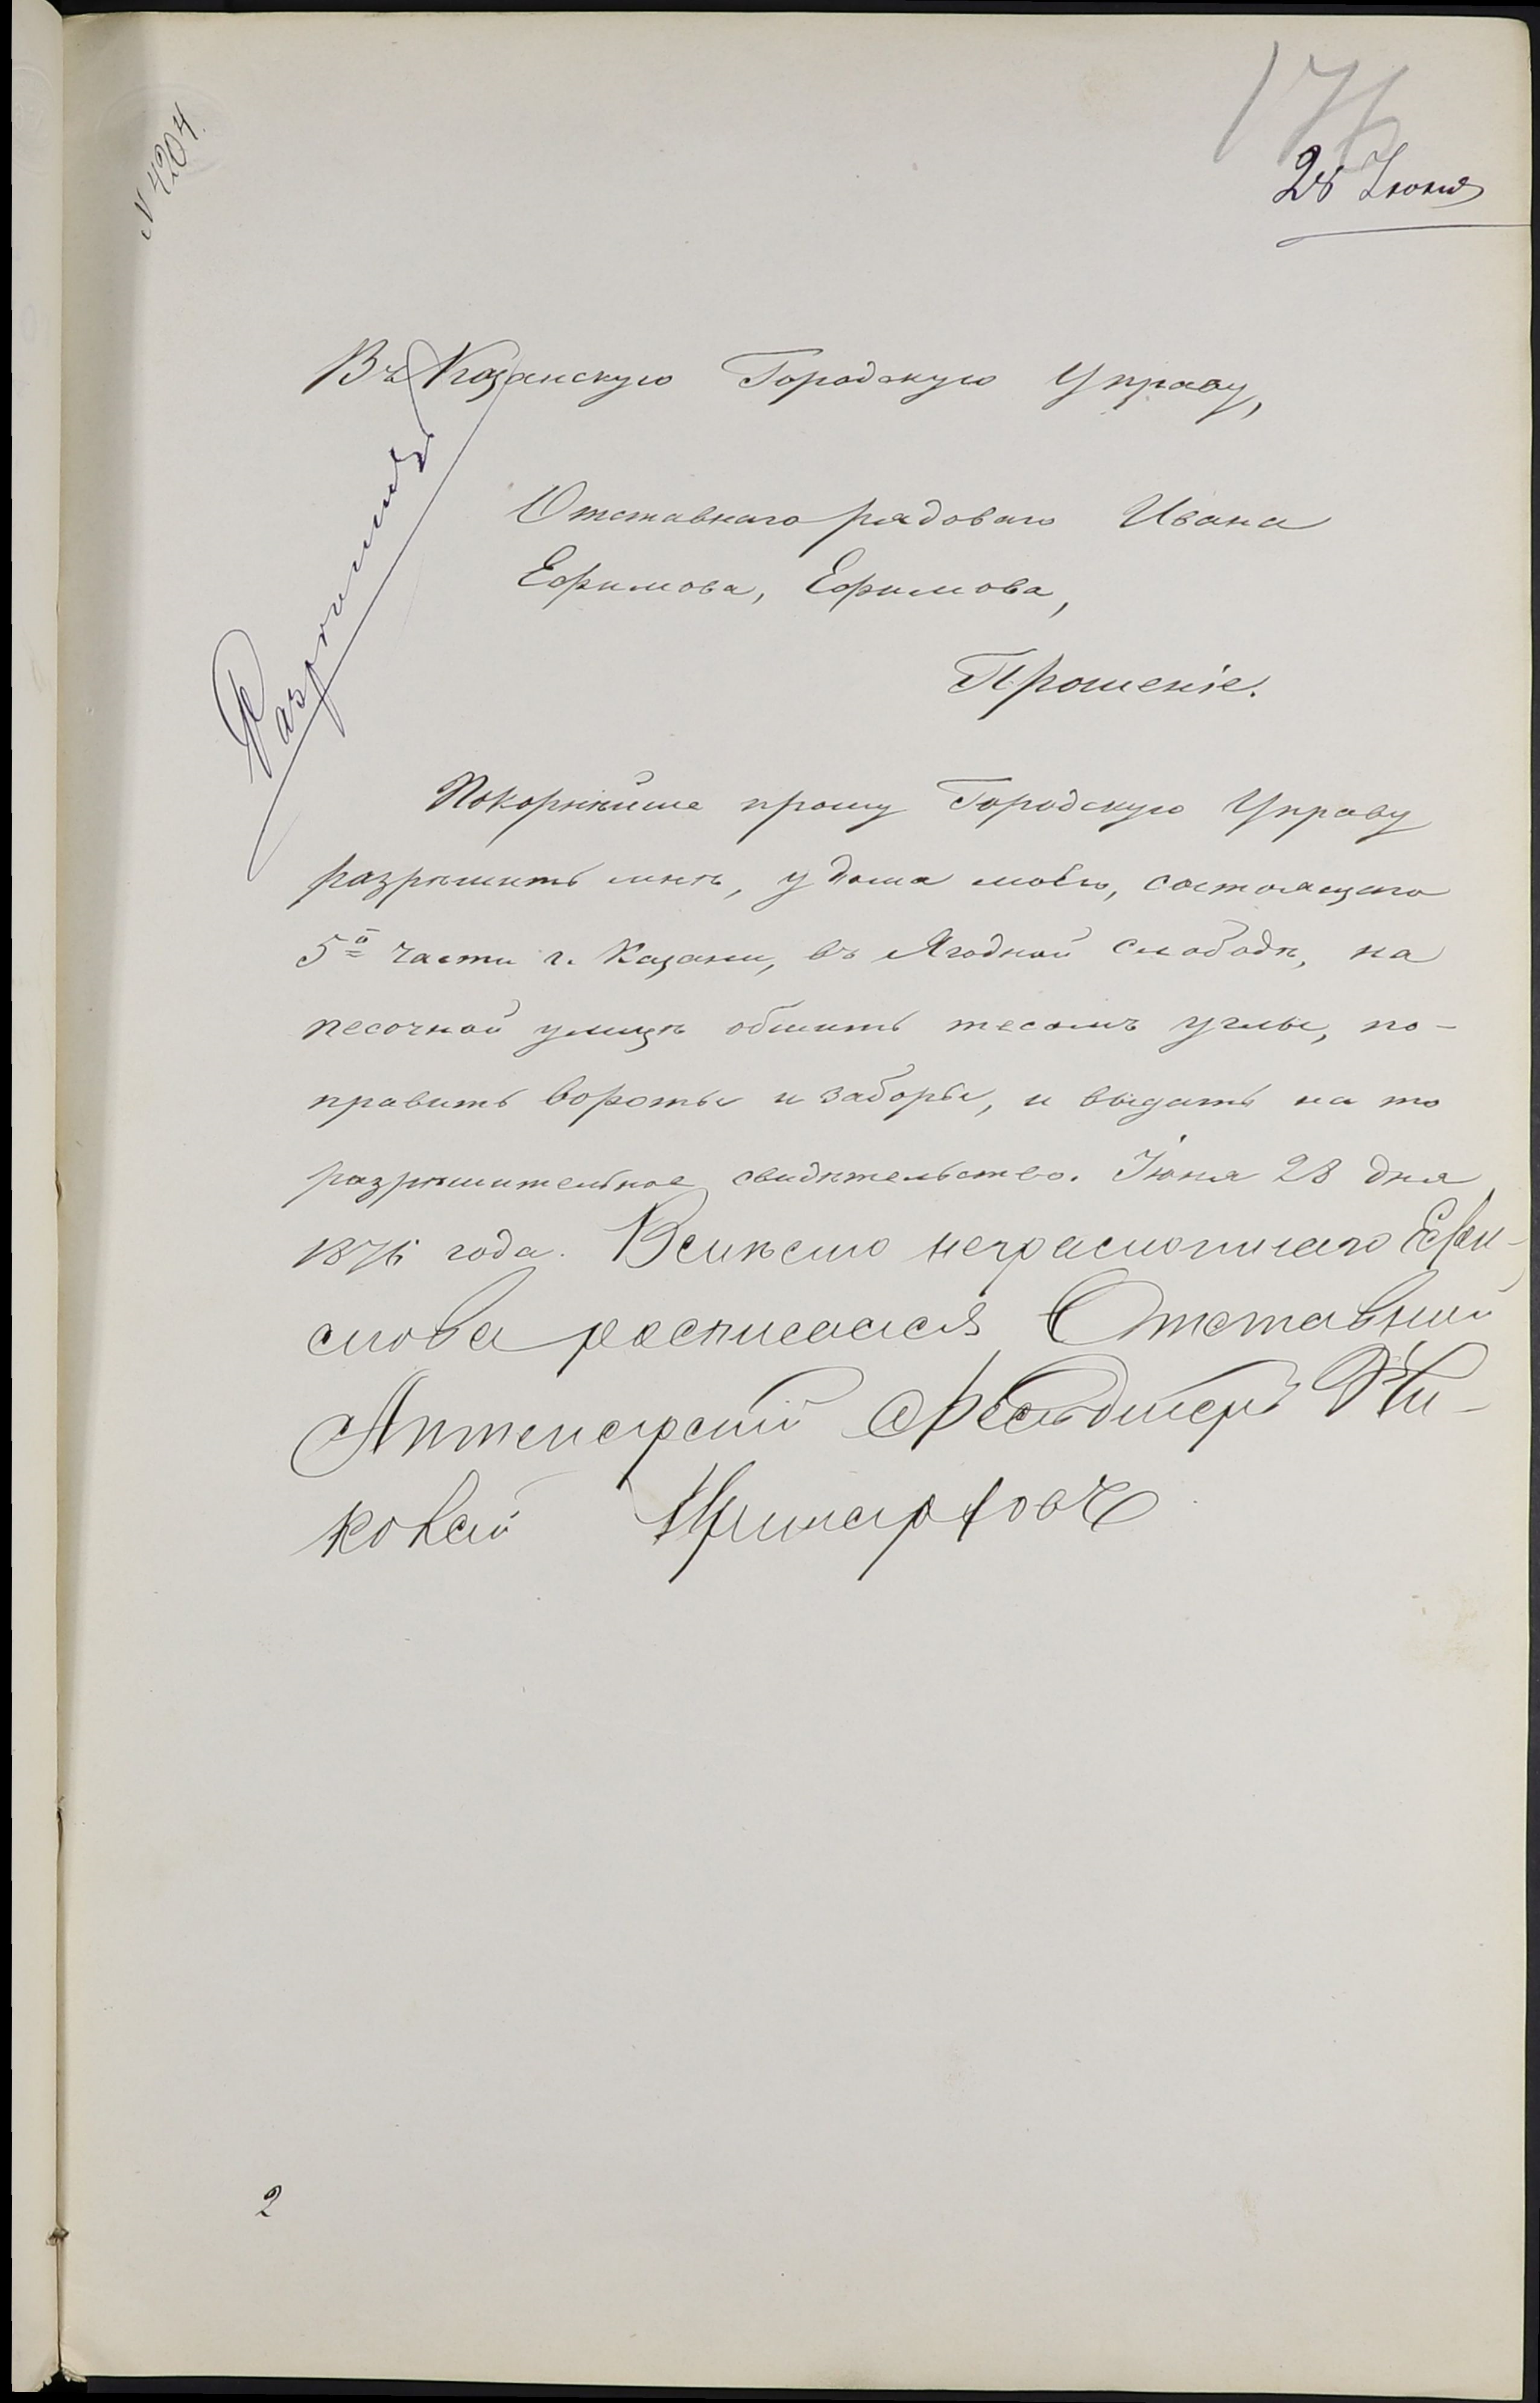 176
28 Іюня
N 4204.
Въ Казанскую Городскую Управу,
Разрѣшить
Отставнаго рядоваго Ивана
Ефимова, Ефимова,
Прошеніе.
Покорнѣйше прошу Городскую Управу
разрѣшить мнѣ, у дома моего, состоящаго
5й части г. Казани, въ Ягодной слободѣ, на
песочной улицѣ обшить тесомъ углы, по-
править вороты и заборы, и выдать на то
разрѣшительное свидѣтельство. Іюня 28 дня
1876 года. неграмотнаго Ефи-
мова росписался Отставный
Аптекарский Фельдшеръ Ни-
колай
2